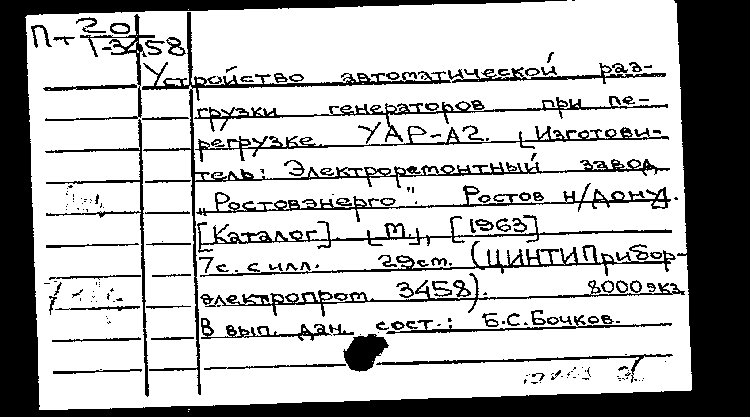 П-20
1-3458
Устройство автоматической раз-
грузки генераторов при пе-
регрузке УАР-А2. [Изготови-
тель: Электроремонтный завод
„Ростовэнерго". Ростов н/Дону].
[Каталог]. [М.], [1963]
7с. с илл. 29см. (ЦИНТИПрибор-
электропром. 3458). 8000 экз.
В вып. дан. сост.: Б.С.Бочков.